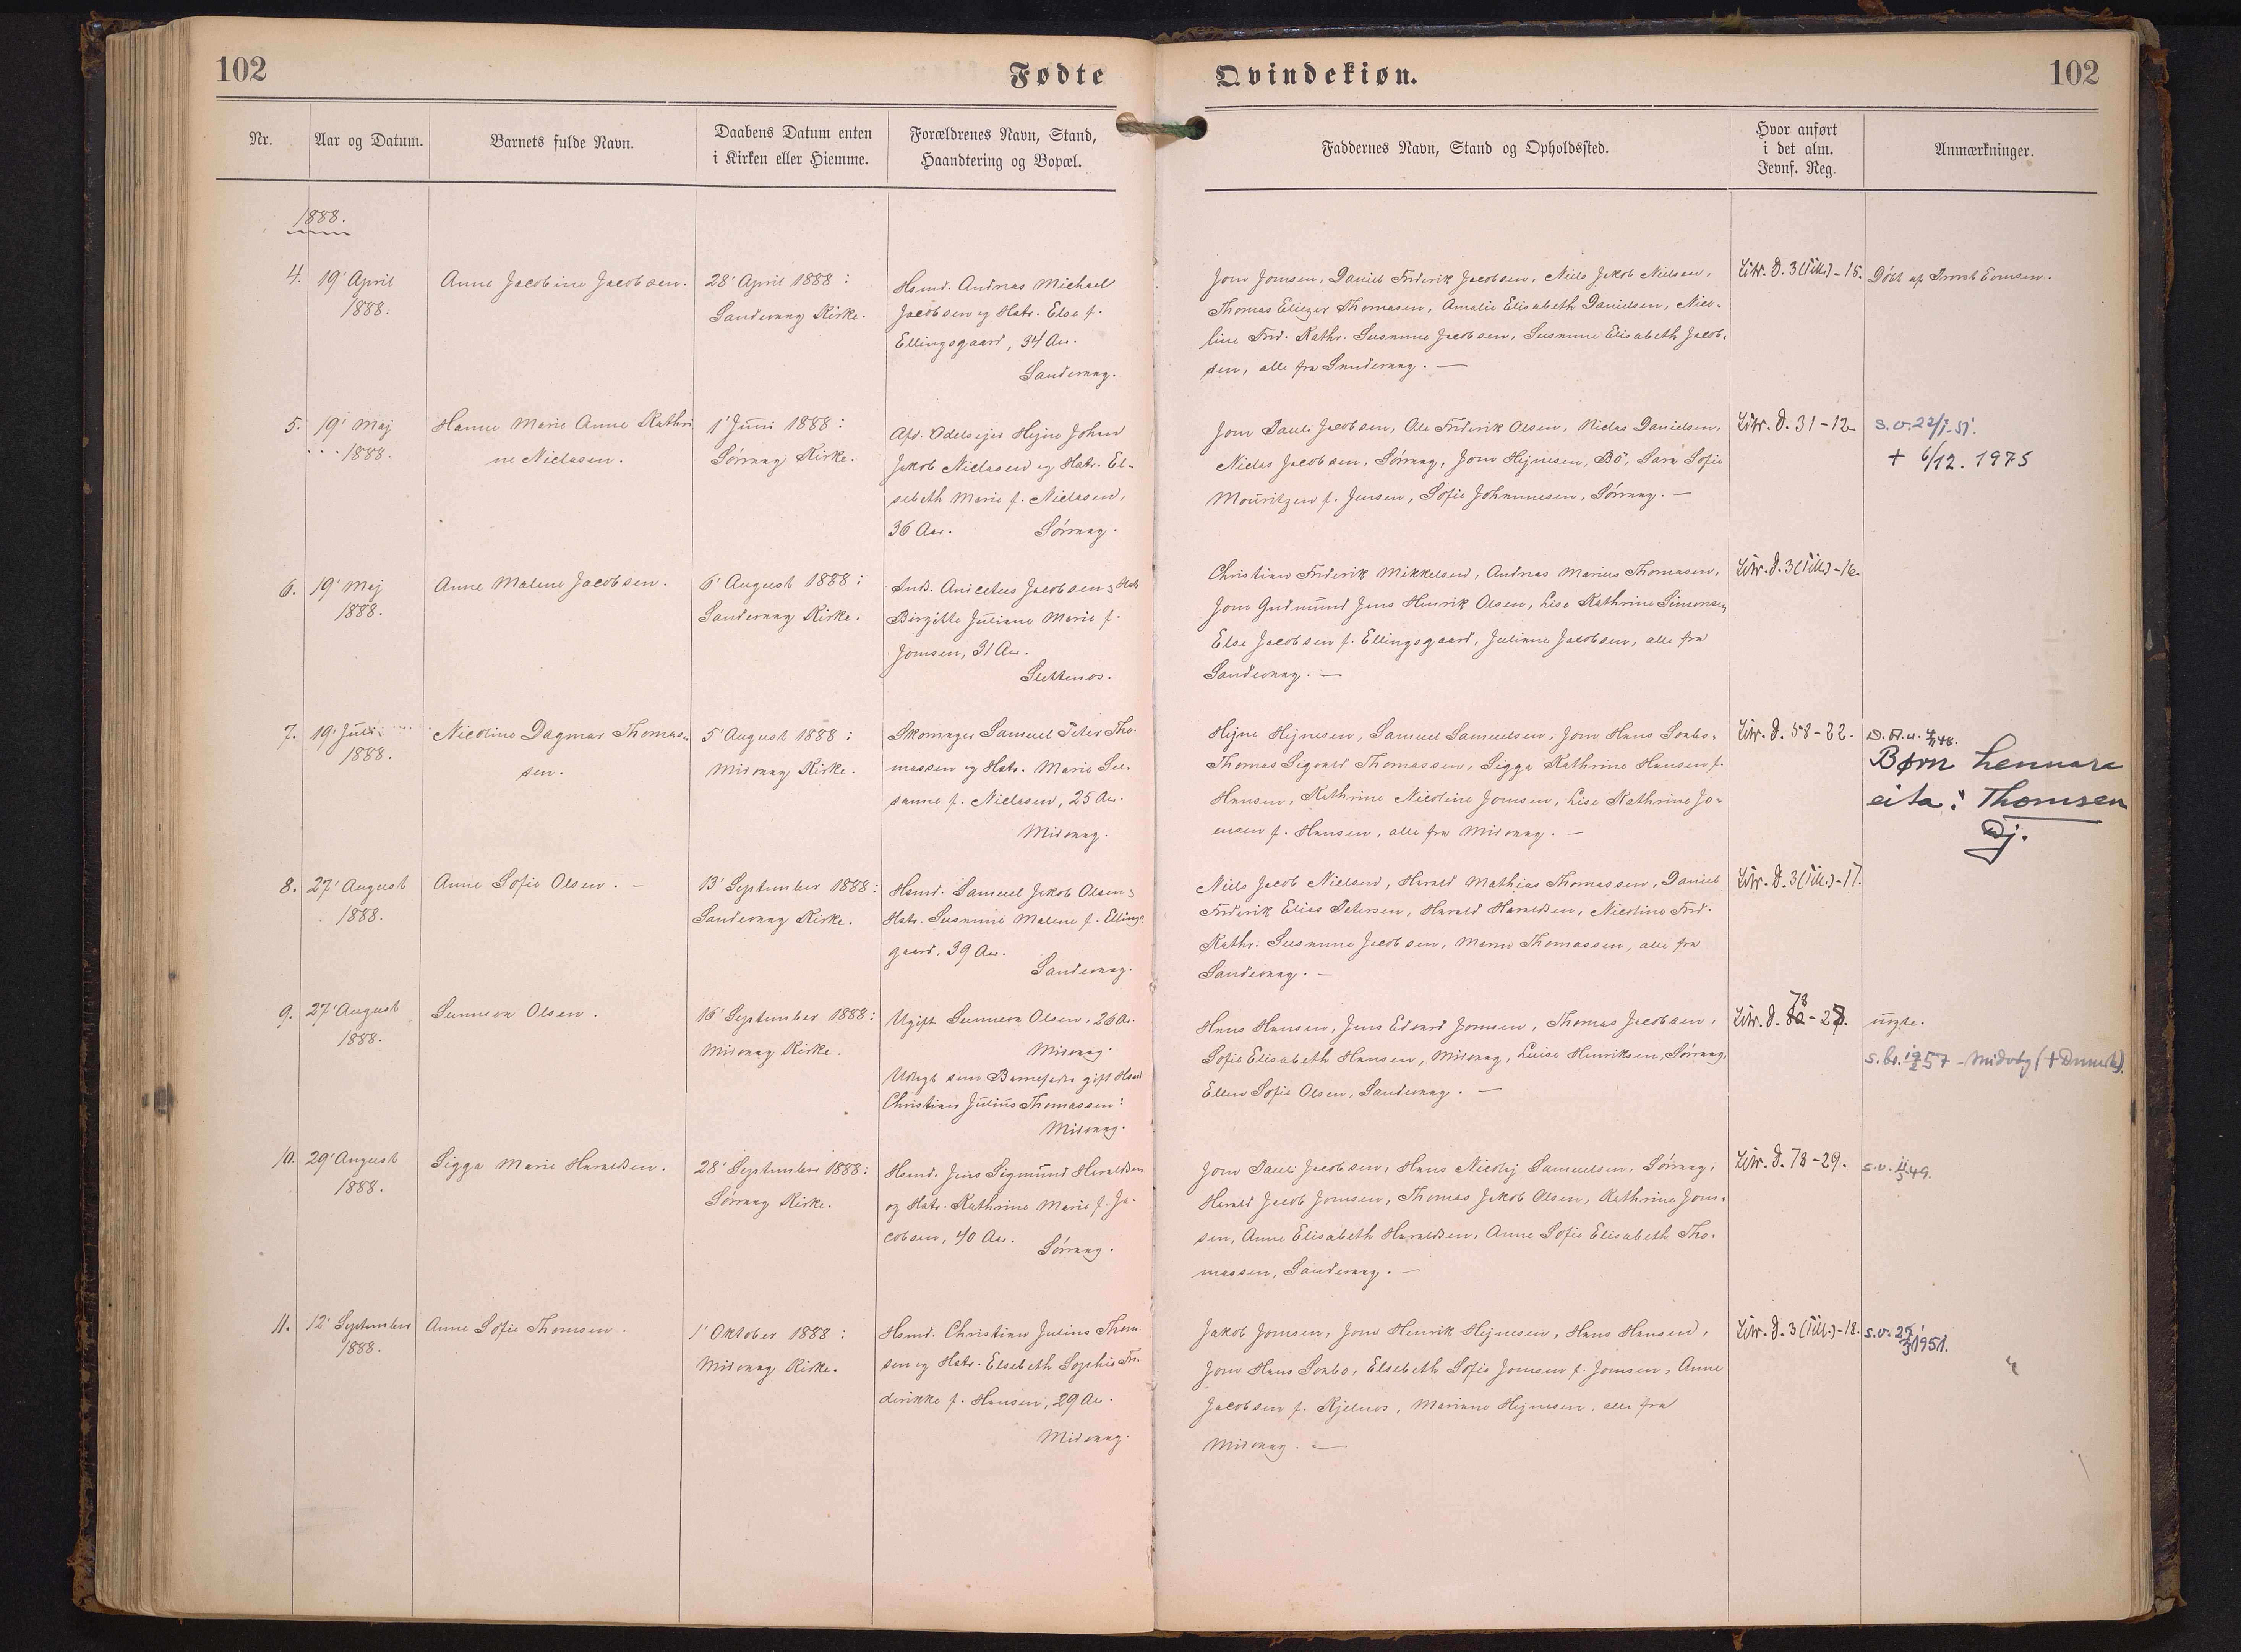 102
Fødte
Qvindekiøn.
102
Nr.
Aar og Datum.
Barnets fulde Navn.
Daabens Datum enten
i Kirken eller Hiemme.
Forældrenes Navn, Stand,
Haandtering og Bopæl.
Faddernes Navn, Stand og Opholdssted.
Hvor anført
i det alm.
Jevnf. Reg.
Anmærkninger.
1888.
4.
19' April
1888.
Anne Jacobine Jacobsen.
28' April 1888:
Sandevaag Kirke.
Hsmd. Andreas Michael
Jacobsen og Hstr. Else f.
Ellingsgaard, 34 Aar.
Sandevaag.
Jom Jomsen, Daniel Friderik Jacobsen, Niels Jakob Nielsen,
Thomas Eliezer Thomasen, Amalie Elisabeth Danielsen, Nico-
line Frid. Kathr. Susanne Jacobsen, Susanne Elisabeth Jacob-
sen, alle fra Sandevaag. —
Litr. D. 3 (Till.) - 15.
Døbt af Provst Evensen.
5.
19' Maj
1888.
Hanne Marie Anne Kathri
ne Niclasen.
1' Juni 1888:
Sørvaag Kirke.
Afd. Odelsejer Hejne Johan
Jakob Niclasen og Hstr. El-
sebeth Marie f. Niclasen,
36 Aar.
Sørvaag.
Jom Pauli Jacobsen, Ole Friderik Olsen, Niclas Danielsen,
Niclas Jacobsen, Sørvaag, Jom Hejnesen, Bö, Sara Sofie
Mouritzen f. Jensen, Sofie Johannesen, Sørvaag. —
Litr. D. 31 - 12.
s.v. 22/1. 51.
+ 6/12. 1975
6.
19' Maj
1888.
Anne Malene Jacobsen.
6' August 1888:
Sandevaag Kirke.
Inds. Anicetus Jacobsen og Hstr
Birgitte Juliane Marie f.
Jomsen, 31 Aar.
Slettenæs.
Christian Friderik Mikkelsen, Andreas Marius Thomasen,
Jom Gudmund Jens Henrik Olsen, Lise Kathrine Simonsen,
Else Jacobsen f. Ellingsgaard, Juliane Jacobsen, alle fra
Sandevaag. —
Litr. D. 3 (Till.) - 16.
7.
19' Juli
1888.
Nicoline Dagmar Thomas-
sen.
5' August 1888:
Midvaag Kirke.
Skomager Samuel Peter Tho-
massen og Hstr. Marie Su-
sanne f. Niclasen, 25 Aar.
Midvaag.
Hejne Hejnesen, Samuel Samuelsen, Jom Hans Sonbo,
Thomas Sigvald Thomassen, Sigga Kathrine Hansen f.
Hansen, Kathrine Nicoline Jomsen, Lise Kathrine Jo-
ensen f. Hansen, alle fra Midvaag. —
Litr. D. 58 - 22.
Børn hennara
eita: Thomsen
Dj.
8.
27' August
1888.
Anne Sofie Olsen. —
13' September 1888:
Sandevaag Kirke.
Hsmd. Samuel Jakob Olsen og
Hstr. Susanne Malene f. Ellings-
gaard, 39 Aar.
Sandevaag.
Niels Jacob Nielsen, Harald Mathias Thomassen, Daniel
Friderik Elias Petersen, Harald Haraldsen, Nicoline Frid.
Kathr. Susanne Jacobsen, Maren Thomassen, alle fra
Sandevaag. —
Litr. D. 3 (Till.) - 17.
9.
27' August
1888.
Sunneva Olsen.
16' September 1888:
Midvaag Kirke.
Ugift Sunneva Olsen, 26 Aar.
Midvaag.
Udlagt som Barnefader gift Hsmd
Christian Julius Thomassen:
Midvaag.
Hans Hansen, Jens Edvard Jomsen, Thomas Jacobsen,
Sofie Elisabeth Hansen, Midvaag, Luise Henriksen, Sørvaag,
Ellen Sofie Olsen, Sandevaag. —
78
Litr. D. - 28.
uægte.
10.
29' August
1888.
Sigga Marie Haraldsen.
28' September 1888:
Sørvaag Kirke.
Hsmd. Jens Sigmund Haraldsen
og Hstr. Kathrine Marie f. Ja-
cobsen, 40 Aar.
Sørvaag.
Jom Pauli Jacobsen, Hans Nicolaj Samuelsen, Sørvaag,
Harald Jacob Jomsen, Thomas Jakob Olsen, Kathrine Jom-
sen, Anne Elisabeth Haraldsen, Anne Sofie Elisabeth Tho-
massen, Sandevaag. —
Litr. D. 78 - 29.
11.
12' September
1888.
Anne Sofie Thomsen.
1' Oktober 1888:
Midvaag Kirke.
Hsmd. Christian Julius Thom-
sen og Hstr. Elsebeth Sophie Fri-
derikke f. Hansen, 29 Aar.
Midvaag.
Jakob Jomsen, Jom Henrik Hejnesen, Hans Hansen,
Jom Hans Sonbo, Elsebeth Sofie Jomsen f. Jomsen, Anne
Jacobsen f. Kjelnæs, Mariane Hejnesen, alle fra
Midvaag. —
Litr. D. 3 (Till.) - 18.
s.v. 25/3 1951.